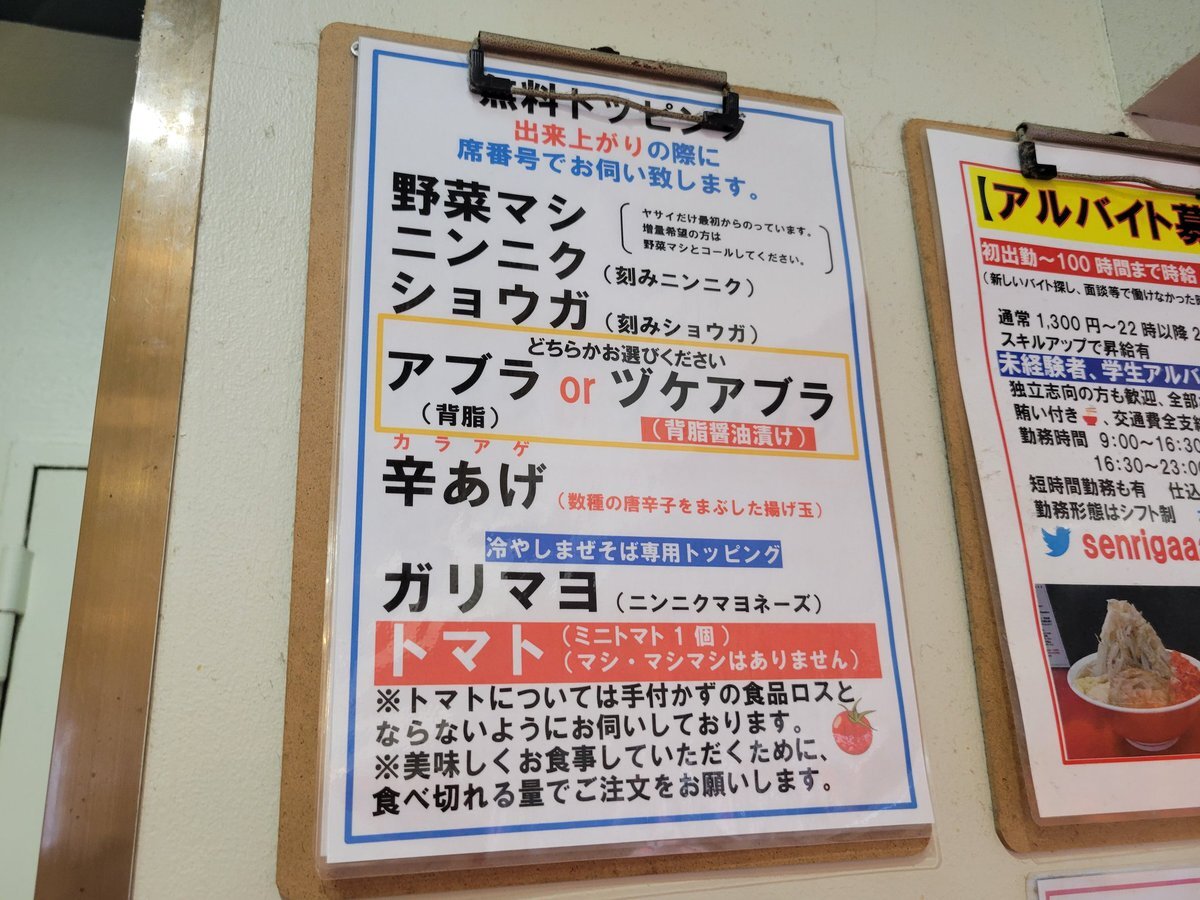 無料トッピング
出来上がりの際に
席番号でお伺い致します。
野菜マシ
ヤサイだけ最初からのっています。
増量希望の方は
野菜マシとコールしてください。
ニンニク（刻みニンニク）
ショウガ（刻みショウガ）
どちらかお選びください
アブラ or ヅケアブラ
（背脂）
（背脂醤油漬け）
カラアゲ
辛あげ（数種の唐辛子をまぶした揚げ玉）
冷やしまぜそば専用トッピング
ガリマヨ（ニンニクマヨネーズ）
トマト（ミニトマト１個）
（マシ・マシマシはありません）
※トマトについては手付かずの食品ロスと
ならないようにお伺いしております。
※美味しくお食事していただくために、
食べ切れる量でご注文をお願いします。
【アルバイト募
初出勤～100時間まで時給
（新しいバイト探し、面談等で働けなかった
通常 1,300円～22時以降 2
スキルアップで昇給有
未経験者、学生アルバ
独立志向の方も歓迎、全部
賄い付き、交通費全支給
勤務時間 9:00～16:30
16:30～23:0
短時間勤務も有 仕込
勤務形態はシフト制
senrigaa